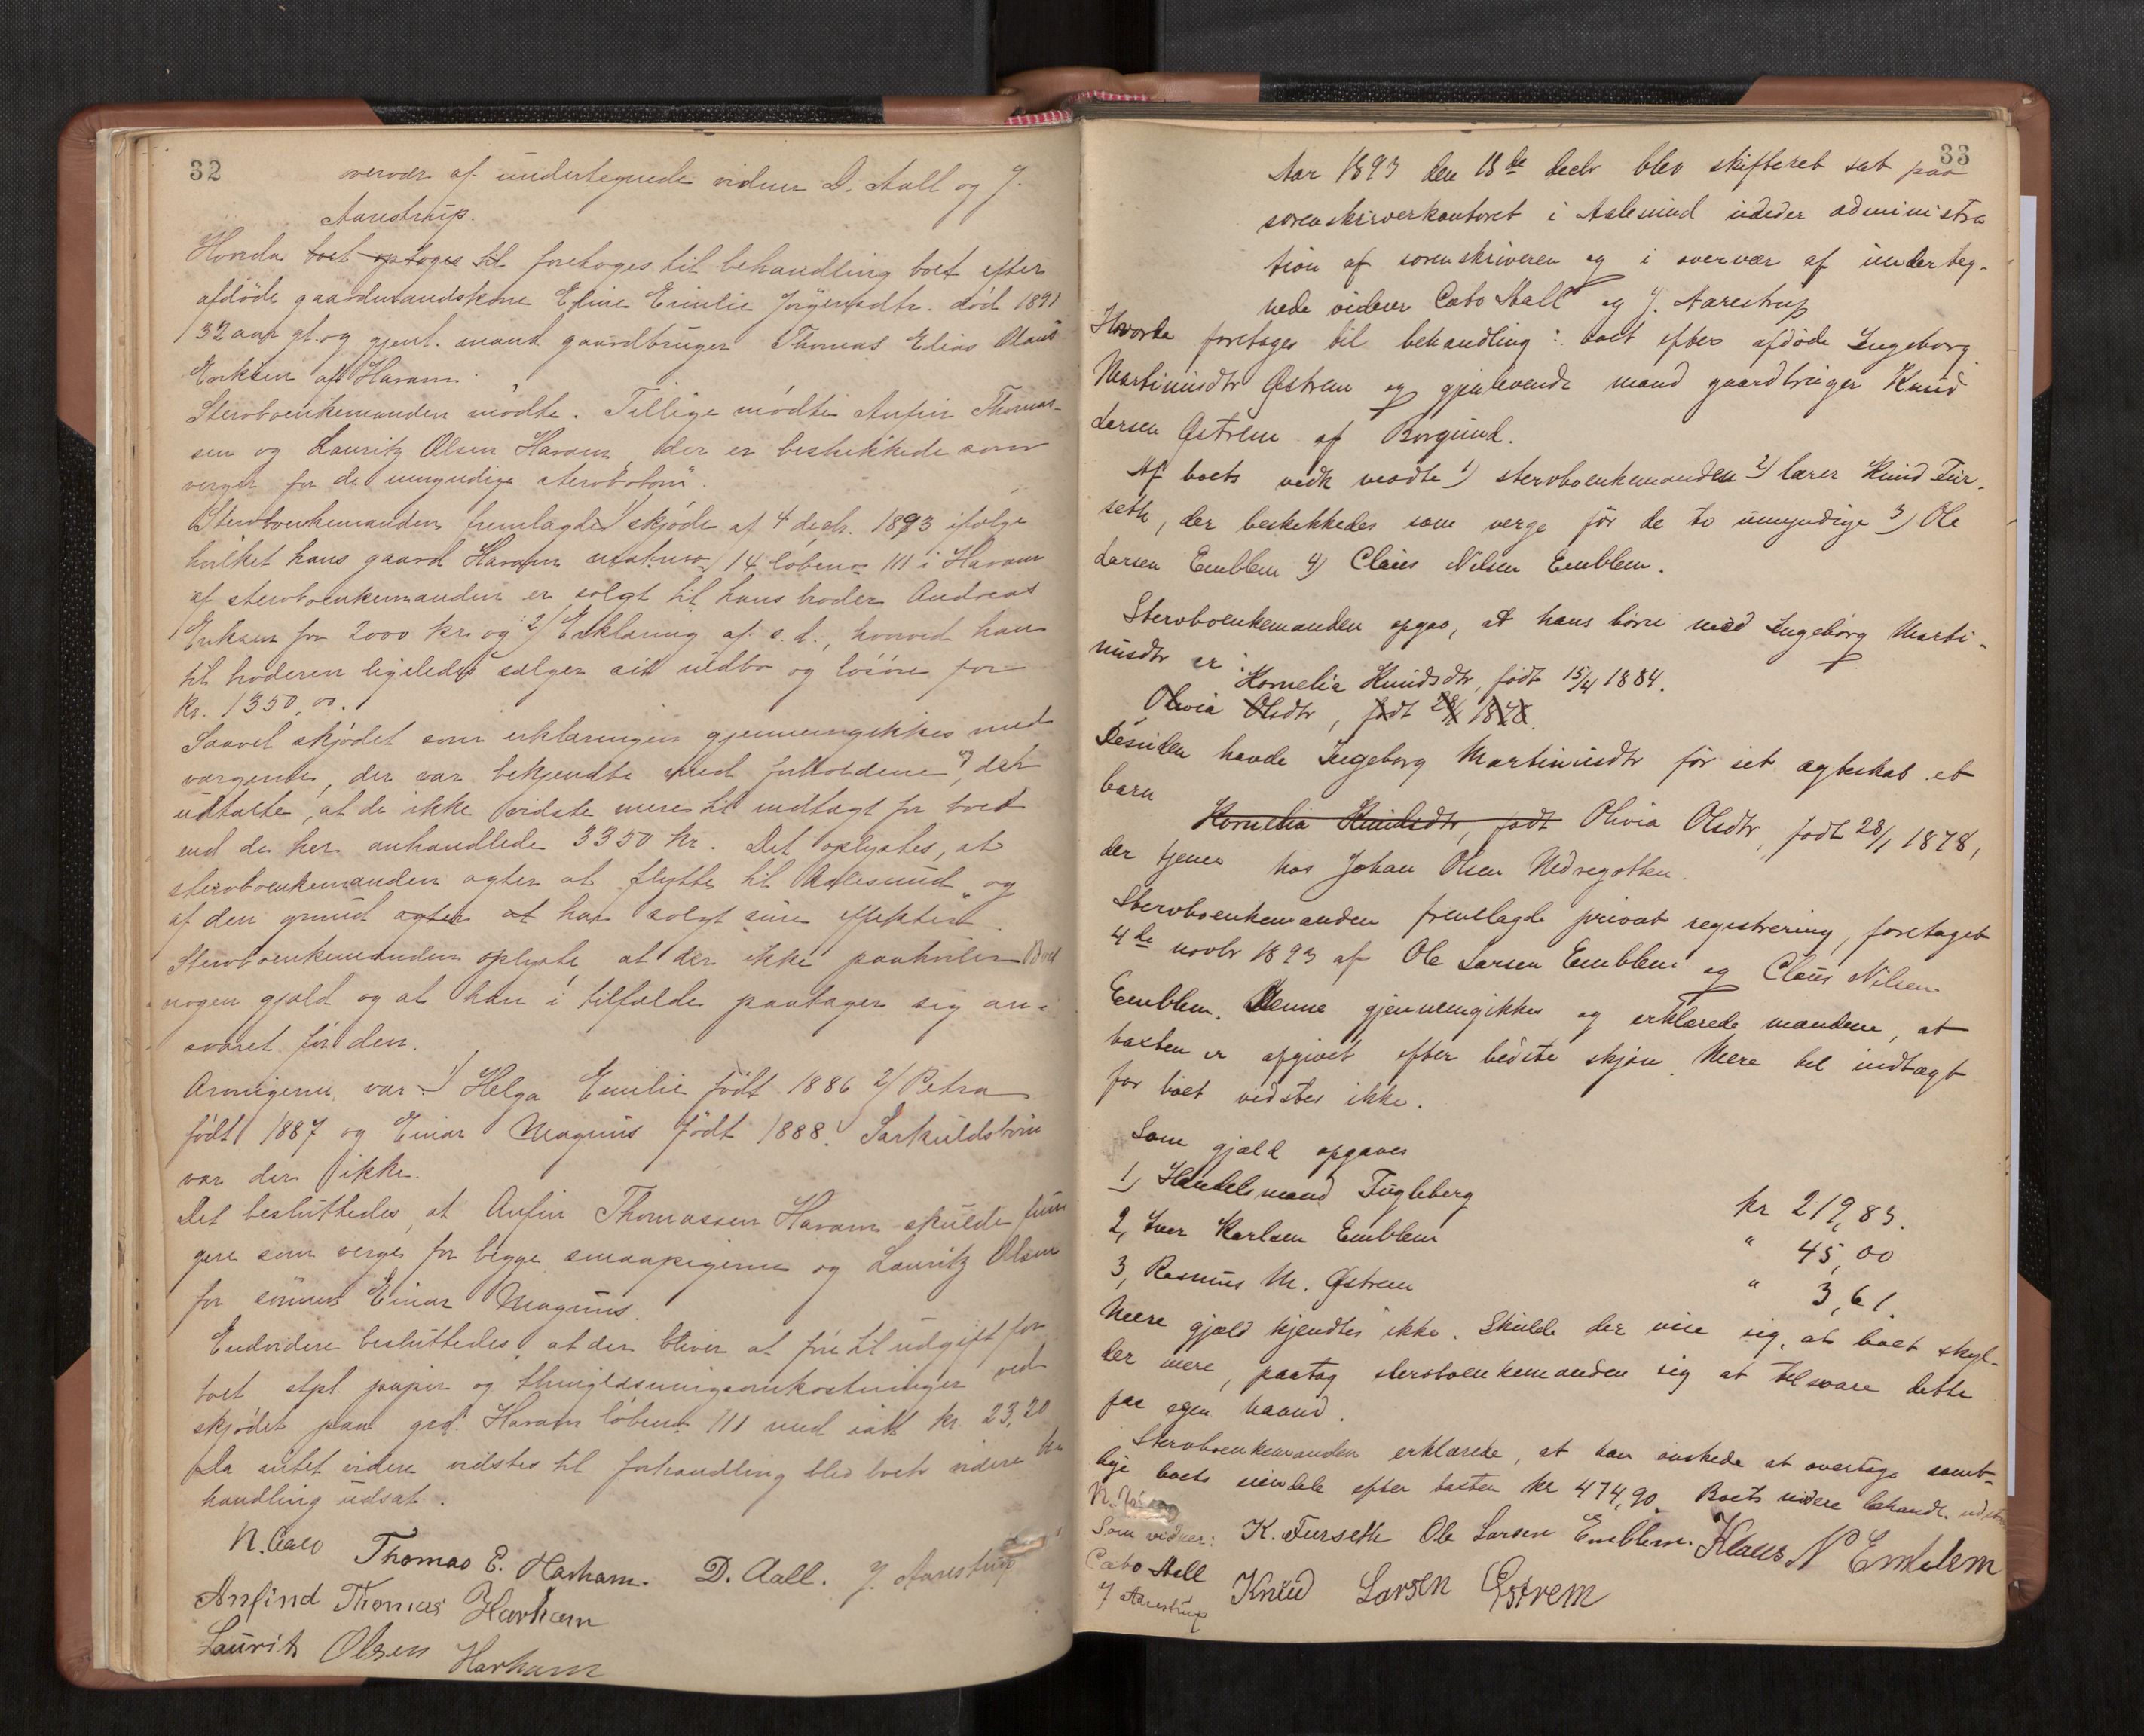 32
overvær af undertegnede vidner D. Aall og J.
Aarestrup.
Hvorda boet optages til foretoges til behandling boet efter
afdöde gaardmandskone Eline Emilie Jörgensdtr. död 1891
32 aar gl. og gjenl. mand gaardbruger Thomas Elias Olaus
Eriksen af Haram.
Stervboenkemanden mödte. Tillige mödte Anfin Thomas-
sen og Lauritz Olsen Haram der er beskikkede som
verger for de umyndige stervbobörn.
Stervboenkemanden fremlagde 1) skjöde af 4 decbr. 1893 ifölge
hvilket hans gaard Haram matrno 14 löbeno 111 i Haram
af stervboenkemanden er solgt til hans broder Andreas
Eriksen for 2000 kr. og 2) Erklæring af s. d., hvorved han
til broderen ligeledes sælger sit indbo og lösöre for
kr. 1350,00.
Saavel skjödet som erklæringen gjennemgikkes med
vergerne, der var bekjendte med forholdene og der
udtalte, at de ikke vidste mere til indtægt for boet
end de her omhandlede 3350 kr. Det oplystes, at
stervboenkemanden agter at flytte til Aalesund og
af den grund agter at har solgt sine effekter.
Stervboenkemanden oplyste, at der ikke paahviler Boet
nogen gjæld og at han i tilfælde paatager sig an-
svaret for den.
Arvingerne var 1) Helga Emilie födt 1886 2) Petra
födt 1887 og Einar Magnus födt 1888. Særkuldsbörn
var der ikke.
Det besluttedes, at Anfin Thomassen Haram skulde fun
gere som verge for begge smaapigerne og Lauritz Olsen
for sönnen Einar Magnus.
Endvidere besluttedes, at der bliver at före til udgift for
boet stpl. papir og thinglæsningsomkostninger ved
skjödet paa grd. Haram löbeno 111 med ialt kr. 23,20
Da intet videre vidstes til forhandling blev boets videre be
handling udsat.
Thomas E. Harham. D. Aall. J. Aarestrup
Anfind Thomas Harham
Laurits Olsen Harham
33
Aar 1893 den 18de decbr blev skifteret sat paa
sorenskriverkontoret i Aalesund under administra
tion af sorenskriveren og i overvær af underteg-
nede vidner Cato Aall og J. Aarestrup
Hvorda foretoges til behandling: boet efter afdöde Ingeborg
Martinusdtr Östrem og gjenlevende mand gaardbruger Knud
Larsen Östrem af Borgund.
Af boets vedk mödte 1) stervboenkemanden 2) lærer Knud Fur-
seth, der beskikkedes som verge for de to umyndige 3) Ole
Larsen Emblem 4) Claus Nilsen Emblem.
Stervboenkemanden opgav, at hans börn med Ingeborg Marti-
nusdtr er:
Kornelia Knudsdtr, födt 15/4 1884.
Olivia Olsdtr, födt 28/1 1878.
Desuden havde Ingeborg Martinusdtr för sit ægteskab et
barn
Kornelia Knudsdtr, födt Olivia Olsdtr, födt 28/1 1878,
der tjener hos Johan Olsen Nedregotten.
Stervboenkemanden fremlagde privat registrering, foretaget
4de novbr 1893 af Ole Larsen Emblem og Claus Nilsen
Emblem. Denne gjennemgikkes og erklærede mændene, at
taxten er afgivet efter bedste skjön. Mere til indtægt
for boet vidstes ikke.
Som gjæld opgaves
1, Handelsmand Fugleberg kr 219,83.
2, Iver Karlsen Emblem " 45,00
3, Rasmus M. Östrem " 3,61.
Mere gjæld kjendtes ikke. Skulde der vise sig, at boet skyl-
der mere, paatog stervboenkemanden sig at tilsvare dette
paa egen haand.
Stervboenkemanden erklærede, at han önskede at overtage samt-
lige boets eiendele efter taxten kr 474,90. Boets videre behandl. udsat
Som vidner: K. Furseth Ole Larsen Emblem. Klaus N Emblem
Cato Aall
J Aarestrup Knud Larsen Östrem